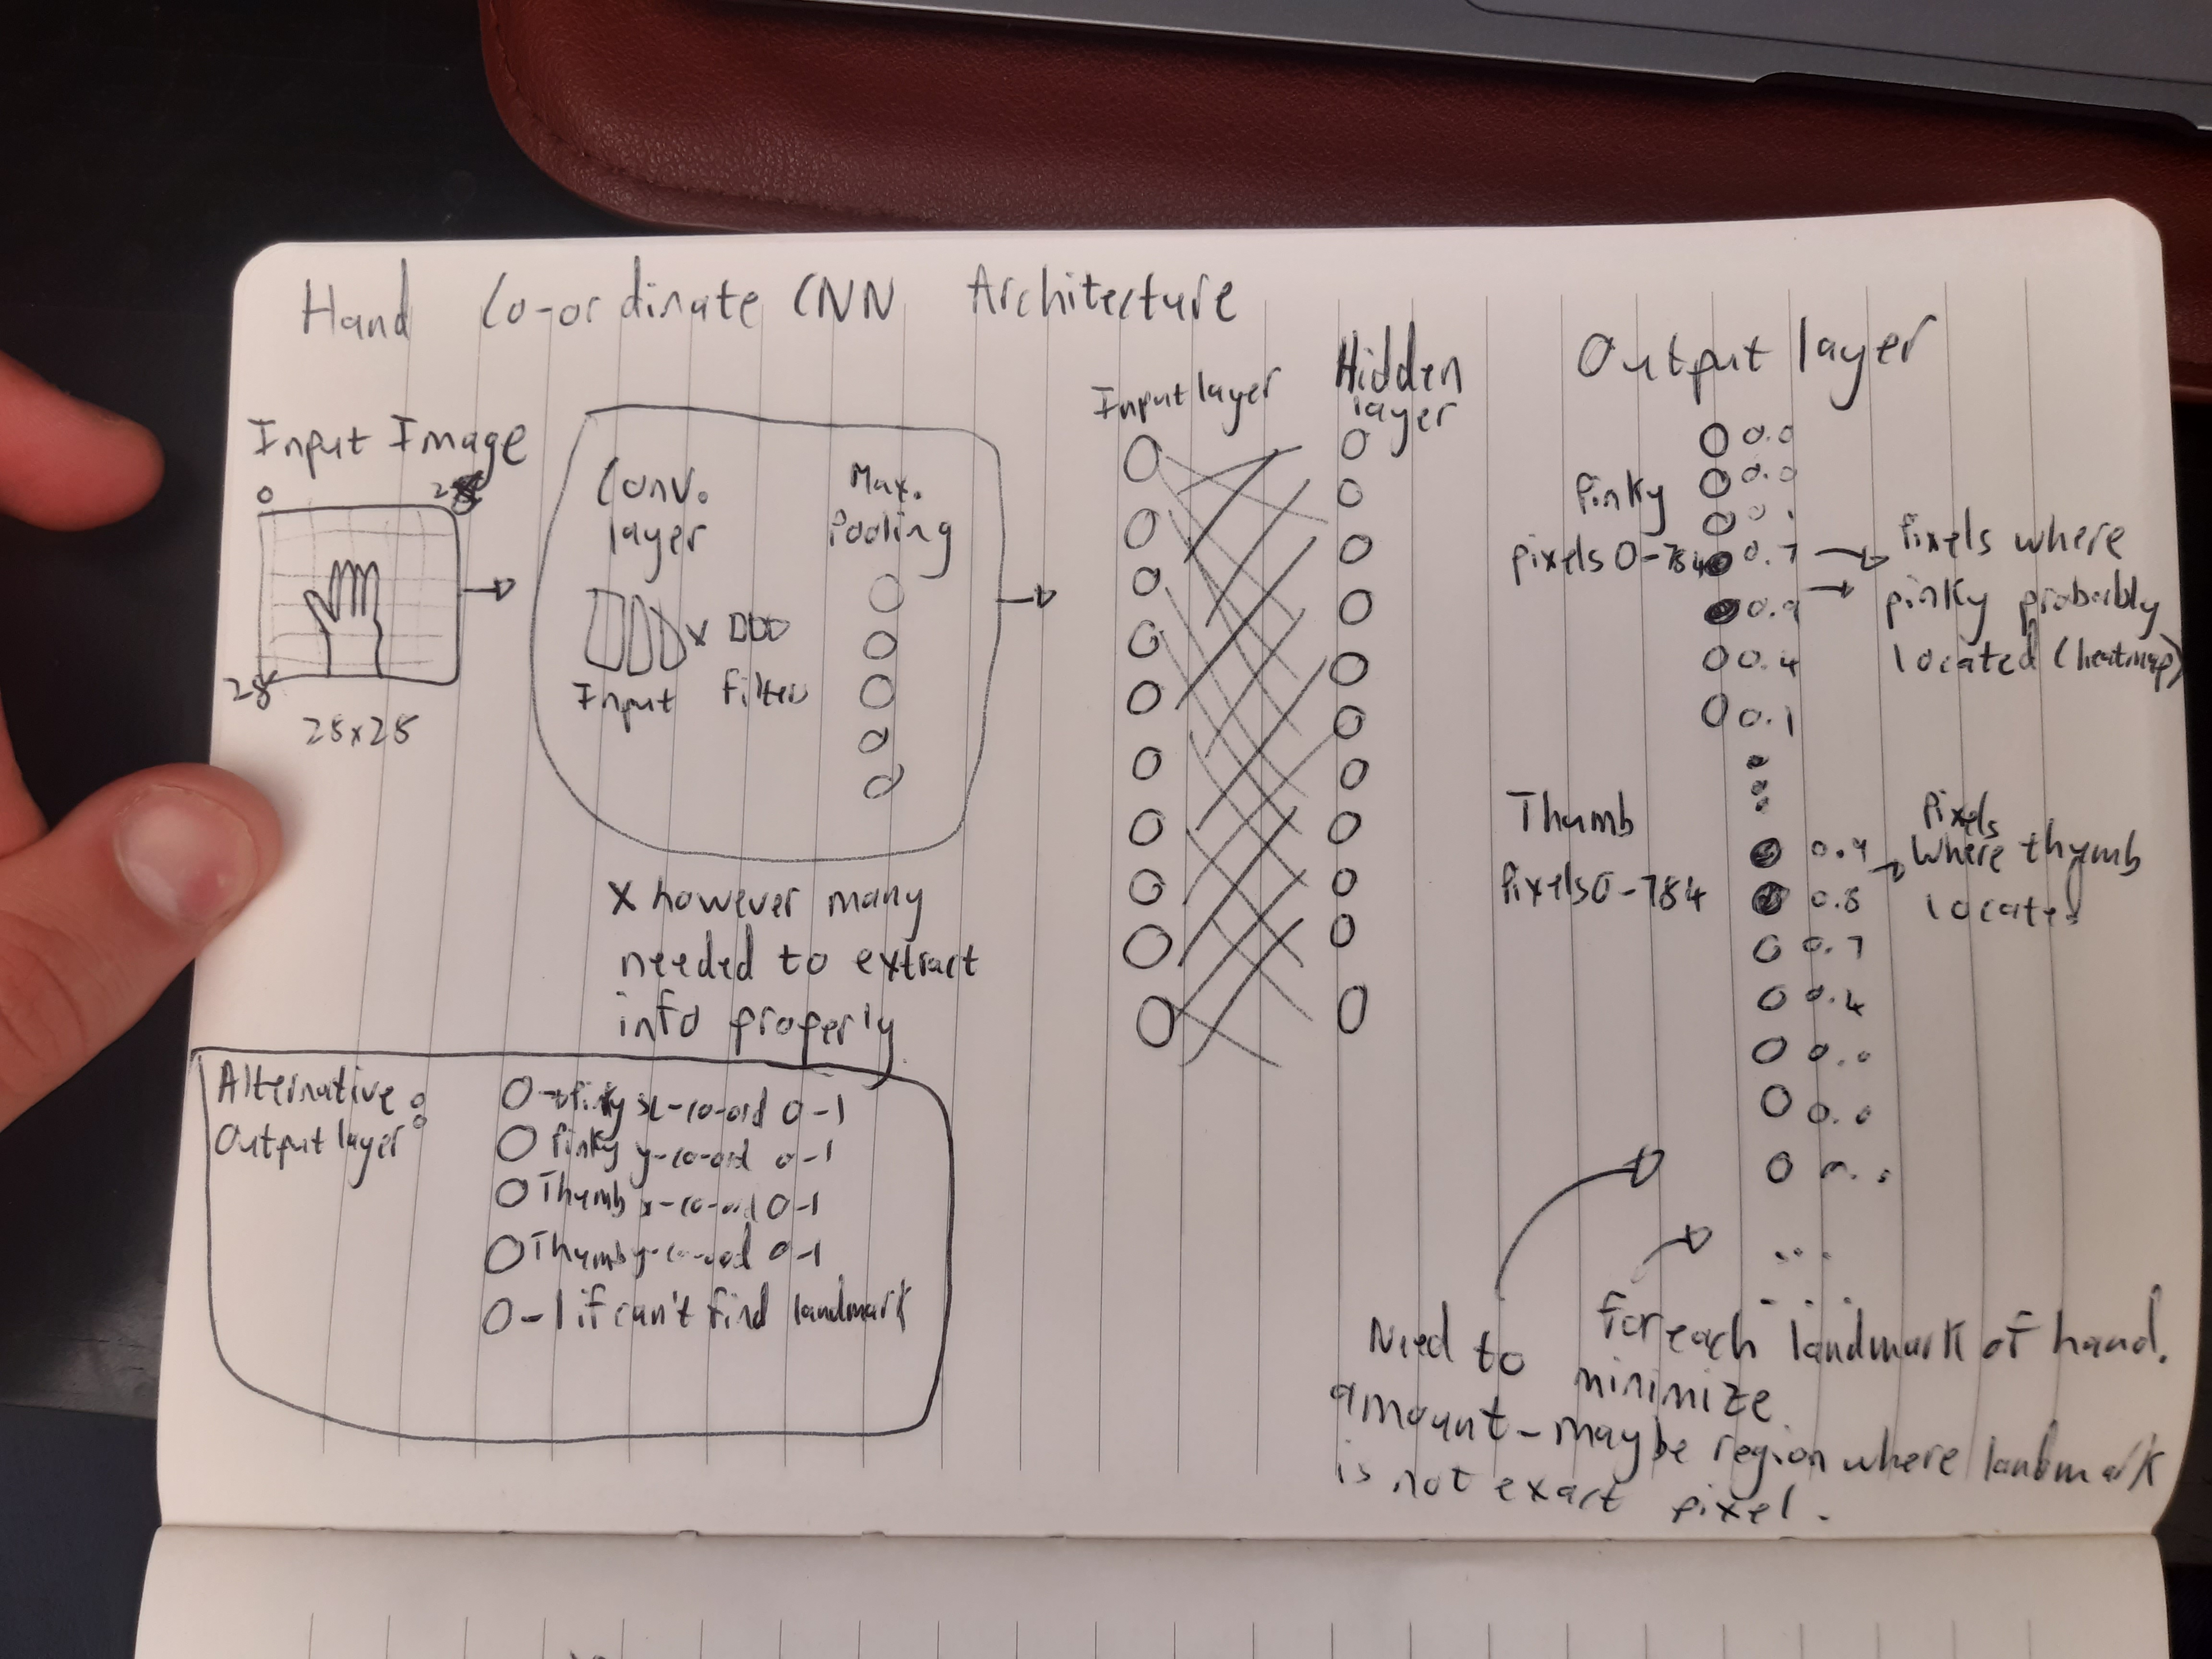 Hand Co-ordinate CNN Architecture
Input Image
0
28
28x28
Conv.
layer
Input
x
filter
Max.
Pooling
x however many
needed to extract
info properly
Input layer
Hidden
layer
Output layer
Pinky
pixels 0-784
0.0
0.0
0.7
0.9
0.4
0.1
Pixels where
pinky probably
located (heatmap)
Thumb
Pixels 0-784
0.9
0.8
0.7
0.4
0.0
0.0
Pixels
where thumb
located
...
For each landmark of hand.
Need to minimize
amount - maybe region where landmark
is not exact pixel.
Alternative
Output layer:
Pinky x-co-ord 0-1
Pinky y-co-ord 0-1
Thumb x-co-ord 0-1
Thumb y-co-ord 0-1
-1 if can't find landmark